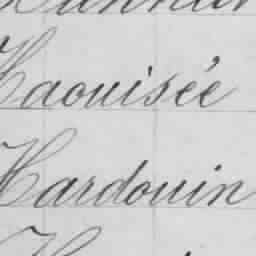 Haouisée
Hardouin